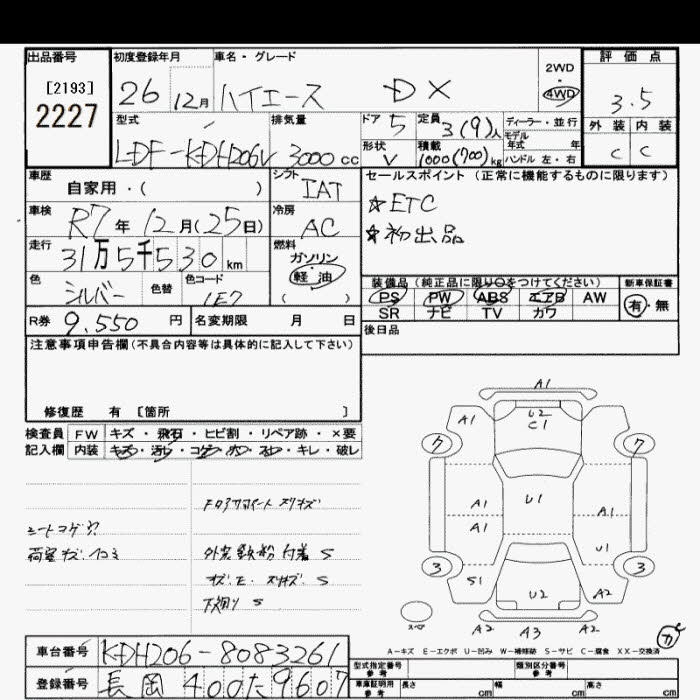 出品番号
[2193]
2227
初度登録年月
26 12月
車名・グレード
ハイエース DX
2WD
・
4WD
評価点
3.5
外装 内装
C C
型式
LDF-KDH206V
排気量
3000 cc
ドア 5
定員 3(9)人
形状 V
積載 1000(700)kg
ディーラー・並行
モデル年式 年
ハンドル 左・右
車歴
自家用・( )
シフト
IAT
車検
R7年12月(25日)
冷房
AC
走行
31万5千530km
燃料
ガソリン
・
軽油
( )
色
シルバー
色替
色コード
1E7
R券 9,550 円
名変期限 月 日
セールスポイント(正常に機能するものに限ります)
☆ETC
☆初出品
装備品(純正品に限り○をつけてください)
PS PW ABS エアB AW
SR ナビ TV カワ
新車保証書
有・無
後日品
注意事項申告欄(不具合内容等は具体的に記入して下さい)
修復歴 有 [箇所 ]
検査員記入欄
FW キズ・飛石・ヒビ割・リペア跡・×要
内装 キズ・汚レ・コゲ・穴・スレ・キレ・破レ
シートコゲ穴
荷室キズ.凹ミ
外装鉄粉付着 S
下廻り S
A1
A1
U2
C1
7
7
A1
A1
U1
A1
U1
3
3
S1
U2
A2
スペア
A2
A3
A2
A-キズ E-エクボ U-凹み W-補修跡 S-サビ C-腐食 XX-交換済
車台番号 KDH206-8083261
登録番号 長岡 400た9607
型式指定番号
参考
類別区分番号
参考
車庫証明用
参考
長さ cm
幅 cm
高さ cm